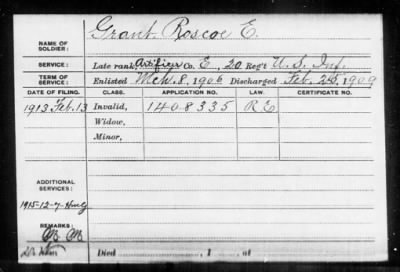 Grant, Roscoe E.
NAME OF SOLDIER:
SERVICE: Late rank, Artificer Co. E, 20 Reg't U. S. Inf.
TERM OF SERVICE: Enlisted Mch. 8, 1906 Discharged Feb. 25, 1909
DATE OF FILING. CLASS. APPLICATION NO. LAW. CERTIFICATE NO.
1913 Feb. 13 Invalid, 1408335 R E
Widow,
Minor,
ADDITIONAL SERVICES:
1915-12-7-
REMARKS:
Died , 1 , at